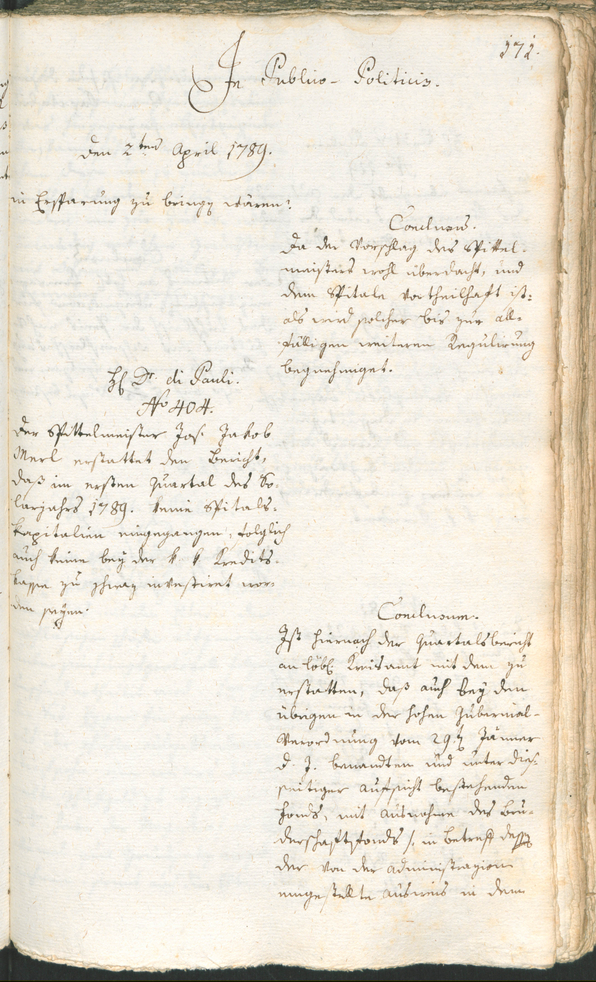 171.
In Publico-Politicis.
den 2ten April 1789.
in Erffarung zu bringen wären?
Conclusum.
Da der Vorschlag des Spittel-
meisters wohl überdacht, und
dem Spitale vortheilhaft ist:
als wird solcher bis zur all-
fälligen weiteren Regulirung
begnehmiget.
H Dr. di Pauli.
No 404.
Der Spittelmeister Jos. Jakob
Merl erstattet den Bericht,
daß im ersten Quartal des So-
larjahrs 1789. keine Spitals-
kapitalien eingegangen, folglich
auch keine bey der k. k. Kredits-
kasse zu investiret wor-
den seyen.
Conclusum.
Ist hiernach der Quartalsbericht
an löbl. Kreisamt mit dem zu
erstatten, daß auch bey den
übrigen in der hohen Gubernial-
Verordnung vom 29. Jänner
d. J. benannten und unter dies-
seitiger Aufsicht bestehenden
Fonds, mit Ausnahme des Bru-
derschaftsfonds /: in Betreff dessen
der von der Administrazion
eingestellte Ausweis in dem